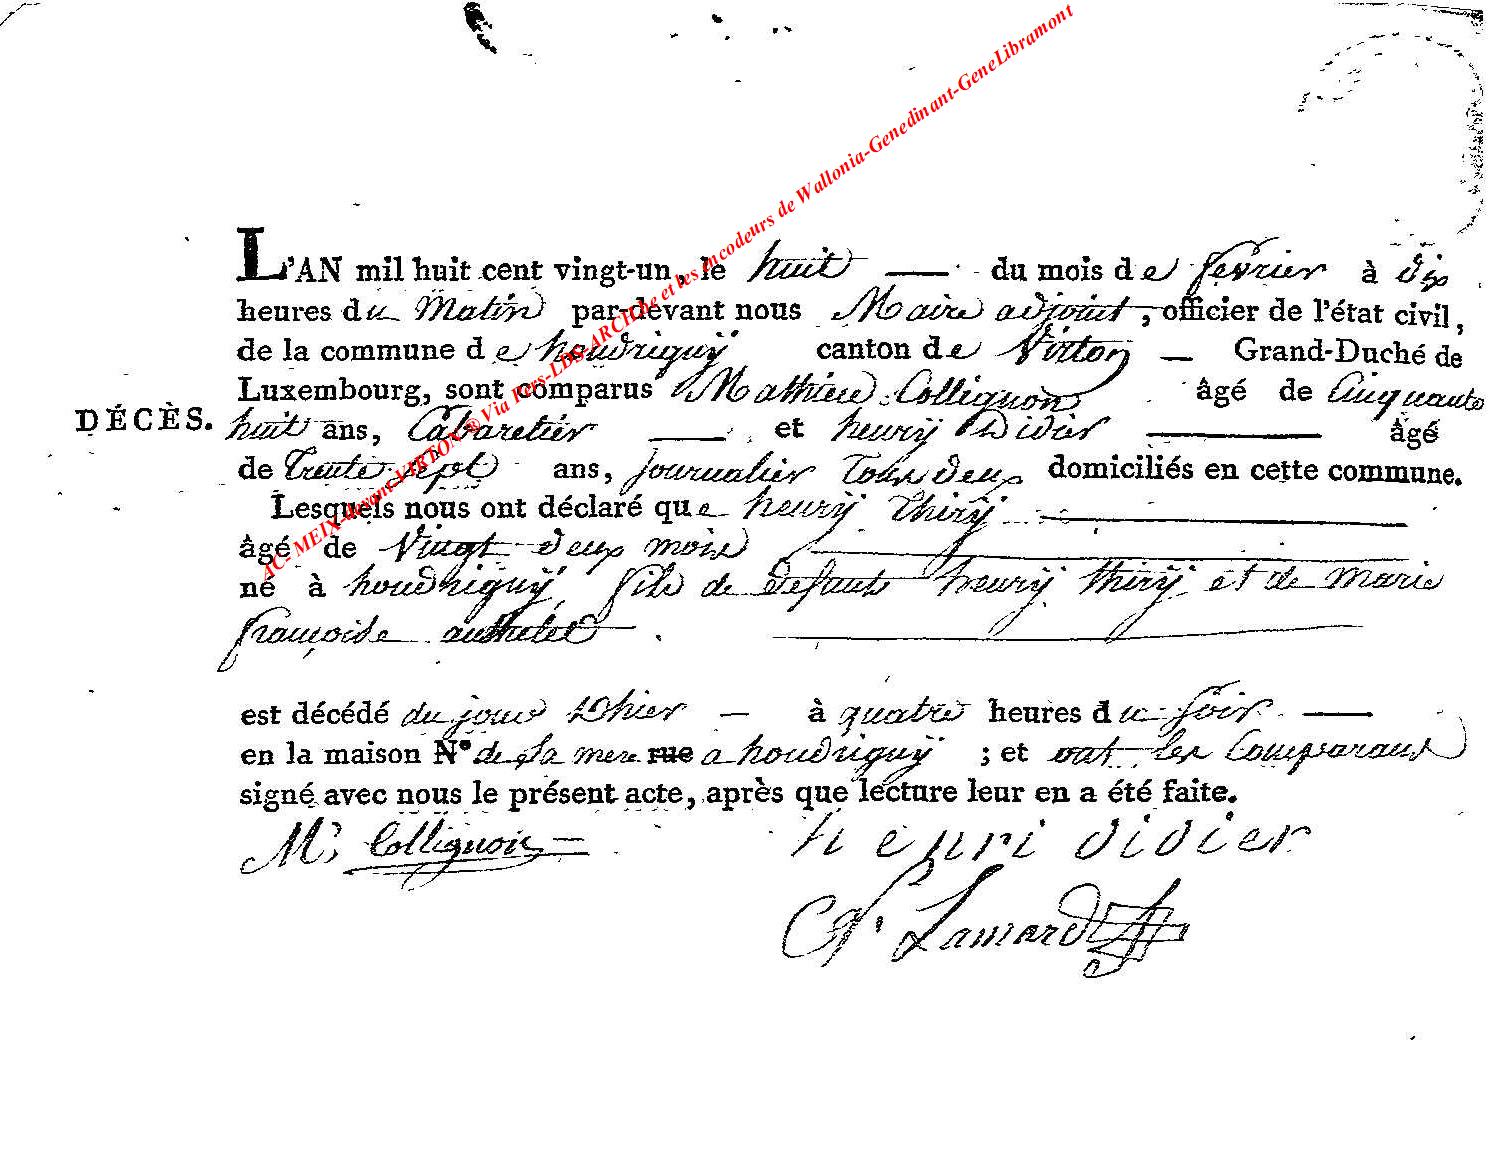 L'AN mil huit cent vingt-un, le huit du mois de fevrier à dix
heures du Matin par-devant nous Maire adjoint, officier de l'état civil,
de la commune de houdriguÿ canton de Virton Grand-Duché de
Luxembourg, sont comparus Mathieu Collignon âgé de Cinquante
DÉCÈS.
huit ans, Cabaretier et henrÿ Didier âgé
de Trente sept ans, journalier Tous deux domiciliés en cette commune.
Lesquels nous ont déclaré que henrÿ Thirÿ
âgé de Vingt deux mois
né à houdriguÿ fils de defunt henrÿ thirÿ et de marie
françoise
est décédé du jour Dhier à quatre heures du soir
en la maison N° de sa mere rue a houdriguÿ ; et ont les Comparans
signé avec nous le présent acte, après que lecture leur en a été faite.
M. Collignon
henri didier
Lamard
AC- MEIX-devant-VIRTON ® Via Pers-LDS-ARCHive et les encodeurs de Wallonia-Genedinant-GeneLibramont